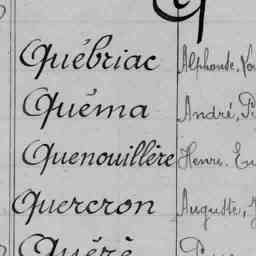 Québriac Alphonse,
Quéma André,
Quenouillère Henri.
Quercron Auguste,
Quéré